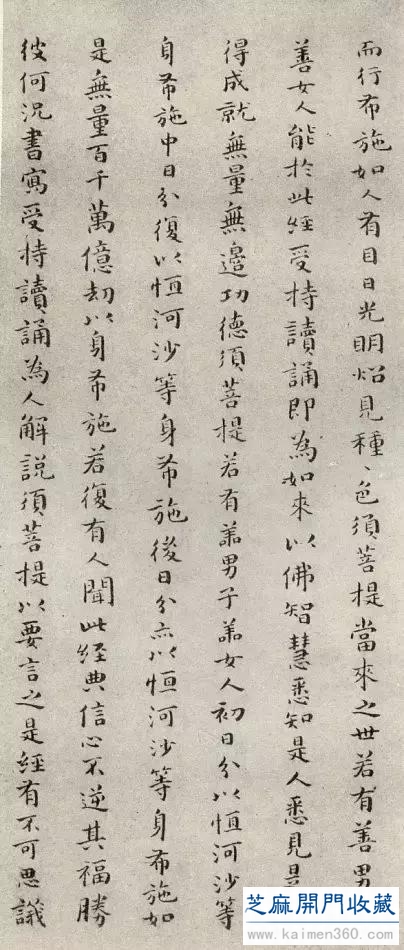 而行布施如人有目日光明炤見種、色須菩提當來之世若有善男
善女人能於此經受持讀誦即為如來以佛智慧悉知是人悉見是
得成就無量無邊功德須菩提若有善男子善女人初日分以恒河沙等
身布施中日分復以恒河沙等身布施後日分亦以恒河沙等身布施如
是無量百千萬億劫以身布施若復有人聞此經典信心不逆其福勝
彼何況書寫受持讀誦為人解說須菩提以要言之是經有不可思議
芝麻開門收藏
www.kaimen360.com